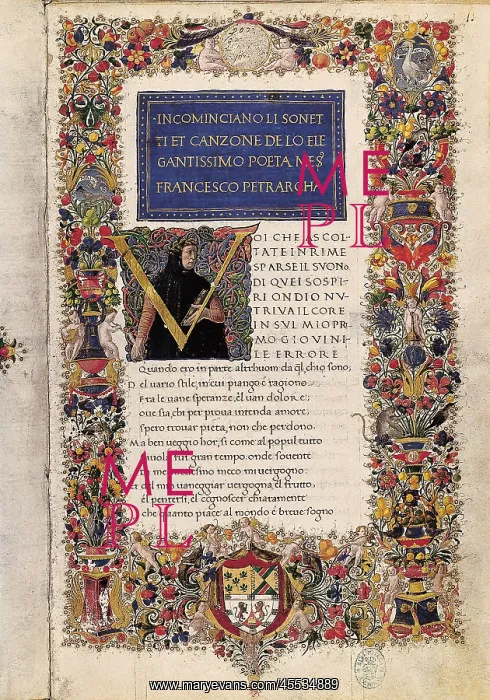 ·INCOMINCIANO LI SONET
TI ET CANZONE DE LO ELE
GANTISSIMO POETA MES
FRANCESCO PETRARCHA
VOI CHE ASCOL-
TATE IN RIME
SPARSE IL SVONO
DI QVEI SOSPI-
RI ONDIO NV-
TRIVA IL CORE
IN SVL MIO PRI-
MO GIOVINI-
LE ERRORE
Quando ero in parte altrhuom da q̃l, chio sono;
Del uario stile, in cui piango é ragiono
Fra le uane speranze, él uan dolore;
oue sia, chi per proua intenda amore,
spero trouar pieta, non che perdono.
Ma ben ueggio hor, si come al popul tutto
fauola fui gran tempo, onde souente
di me medesimo meco mi uergogno:
et del mio uaneggiar uergogna é l frutto,
él pentersi, él cognoscer chiaramente
che quanto piace al mondo é breue sogno
ME
PL
ME
PL
www.maryevans.com/45534889